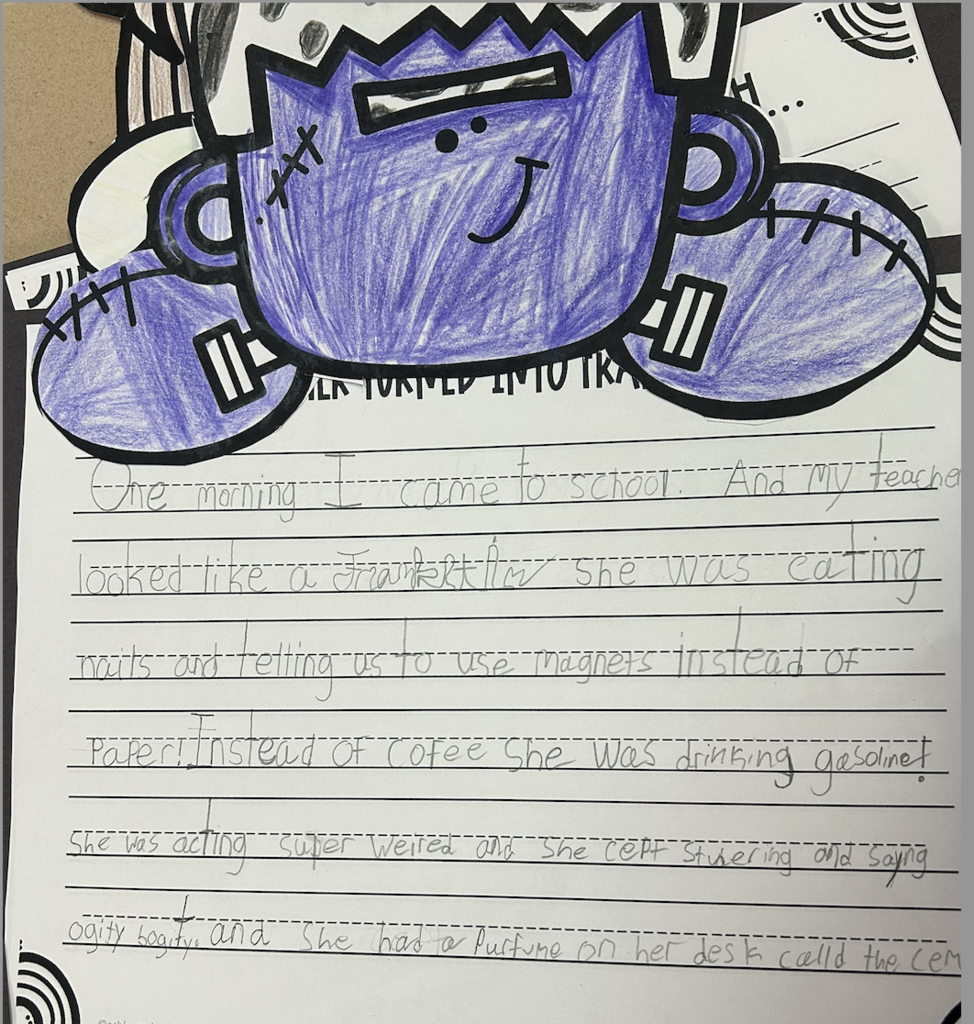 H...
TURNED INTO TRA
One morning I came to school. And my teache
looked like a she was eating
nails and telling us to use magnets instead of
Paper! Instead of cofee she was drinking gasoline!
she was acting super weired and she cept stutering and sayng
ogity bogity, and she had a Purfume on her desk calld the cem